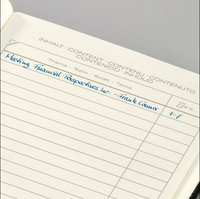 INHALT · CONTENT · CONTENU · CONTENUTO
CONTENIDO · INHOUD
Thema · Topic · Sujet · Tema
Meeting Financial Perspectives Inc. – Frank Conner 1-7